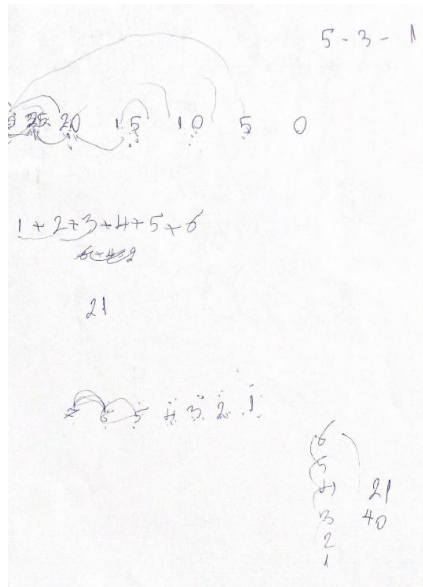 5 - 3 - 1
25 20 15 10 5 0
1 + 2 + 3 + 4 + 5 + 6
21
7 6 5 4 3 2 1
6
5
4 21
3 40
2
1